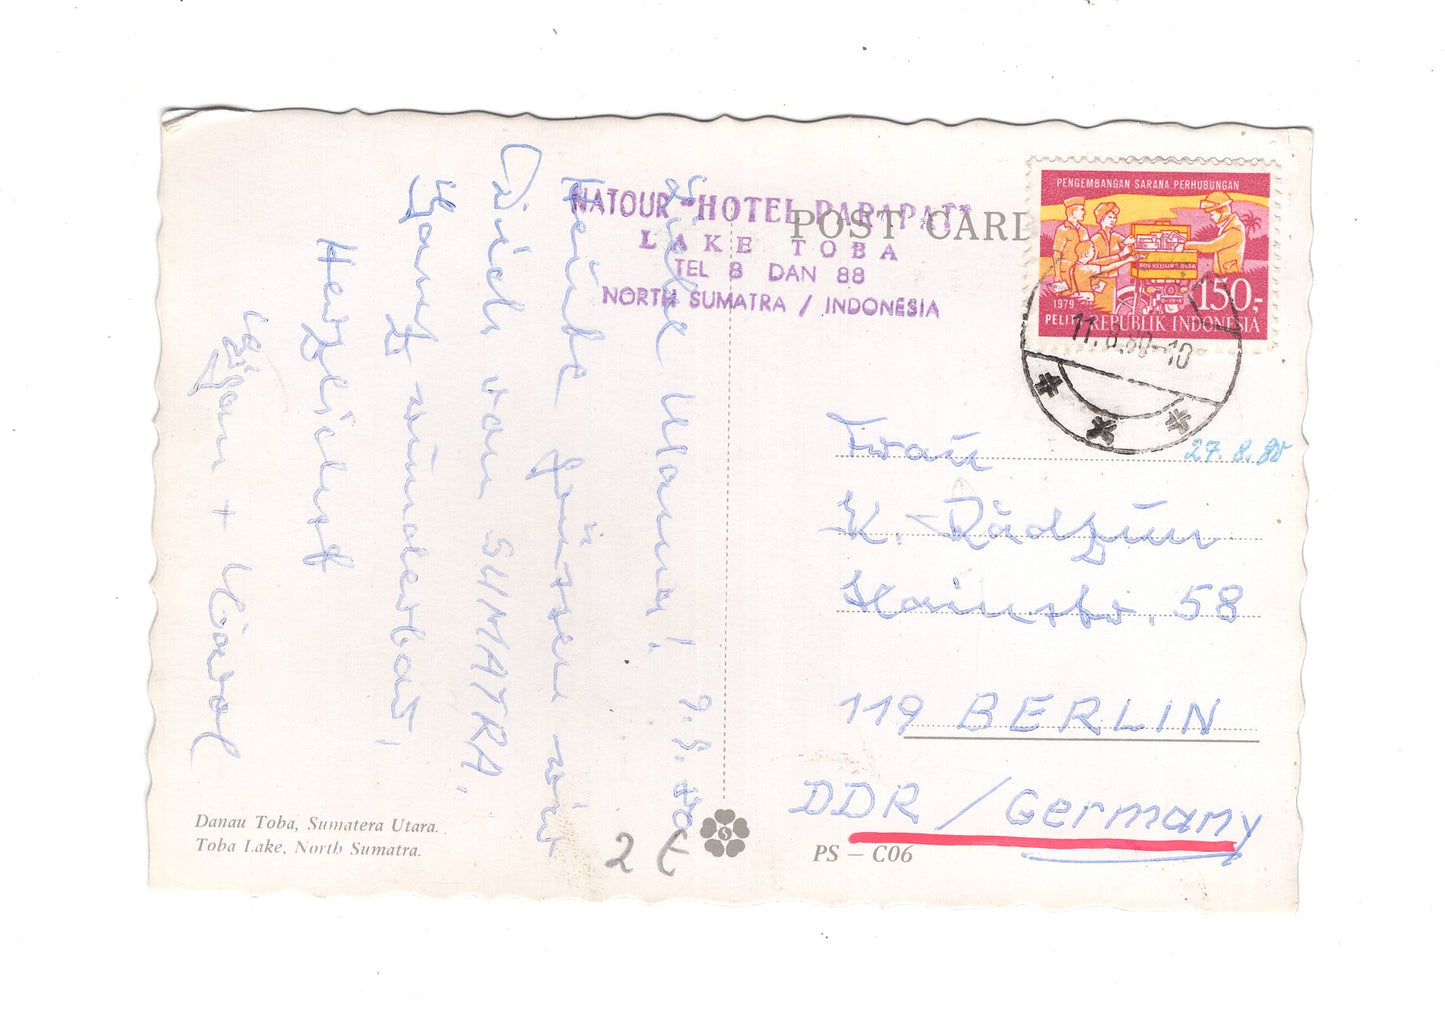 NATOUR-HOTEL PARAPAT
LAKE TOBA
TEL 8 DAN 88
NORTH SUMATRA / INDONESIA
POST CARD
PENGEMBANGAN SARANA PERHUBUNGAN
POS KELILING DESA
1979
150,-
PELITA REPUBLIK INDONESIA
11.8.80-10
27.8.80
9.8.80
Liebe Mama!
Heute grüßen wir
Dich von SUMATRA,
Ganz wunderbar,
Herzlichst
+
Frau
K. Rädzun
Hainstr. 58
119 BERLIN
DDR / Germany
Danau Toba, Sumatera Utara.
Toba Lake, North Sumatra.
2 €
PS – C06